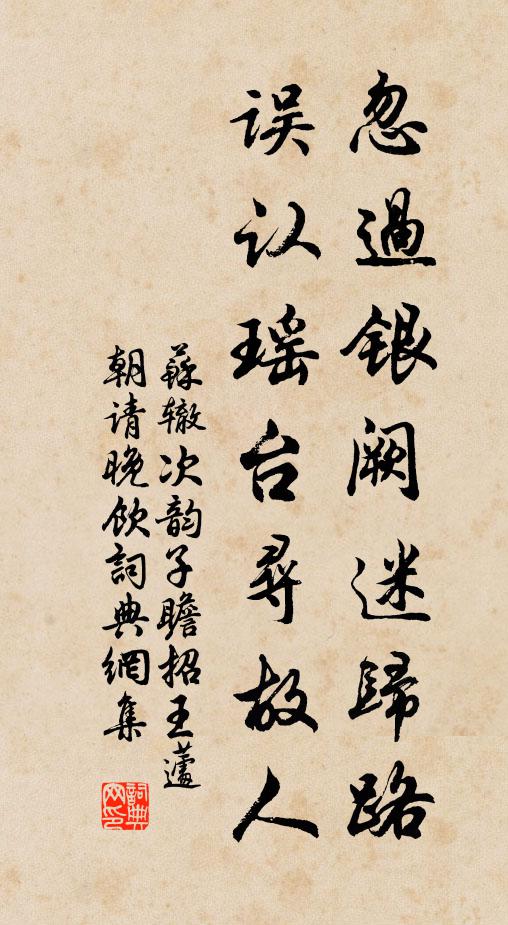 忽過银阙迷歸路
误认瑶台尋故人
蘇辙次韵子瞻招王蘧
朝请晚饮詞典網集
詞典
网印